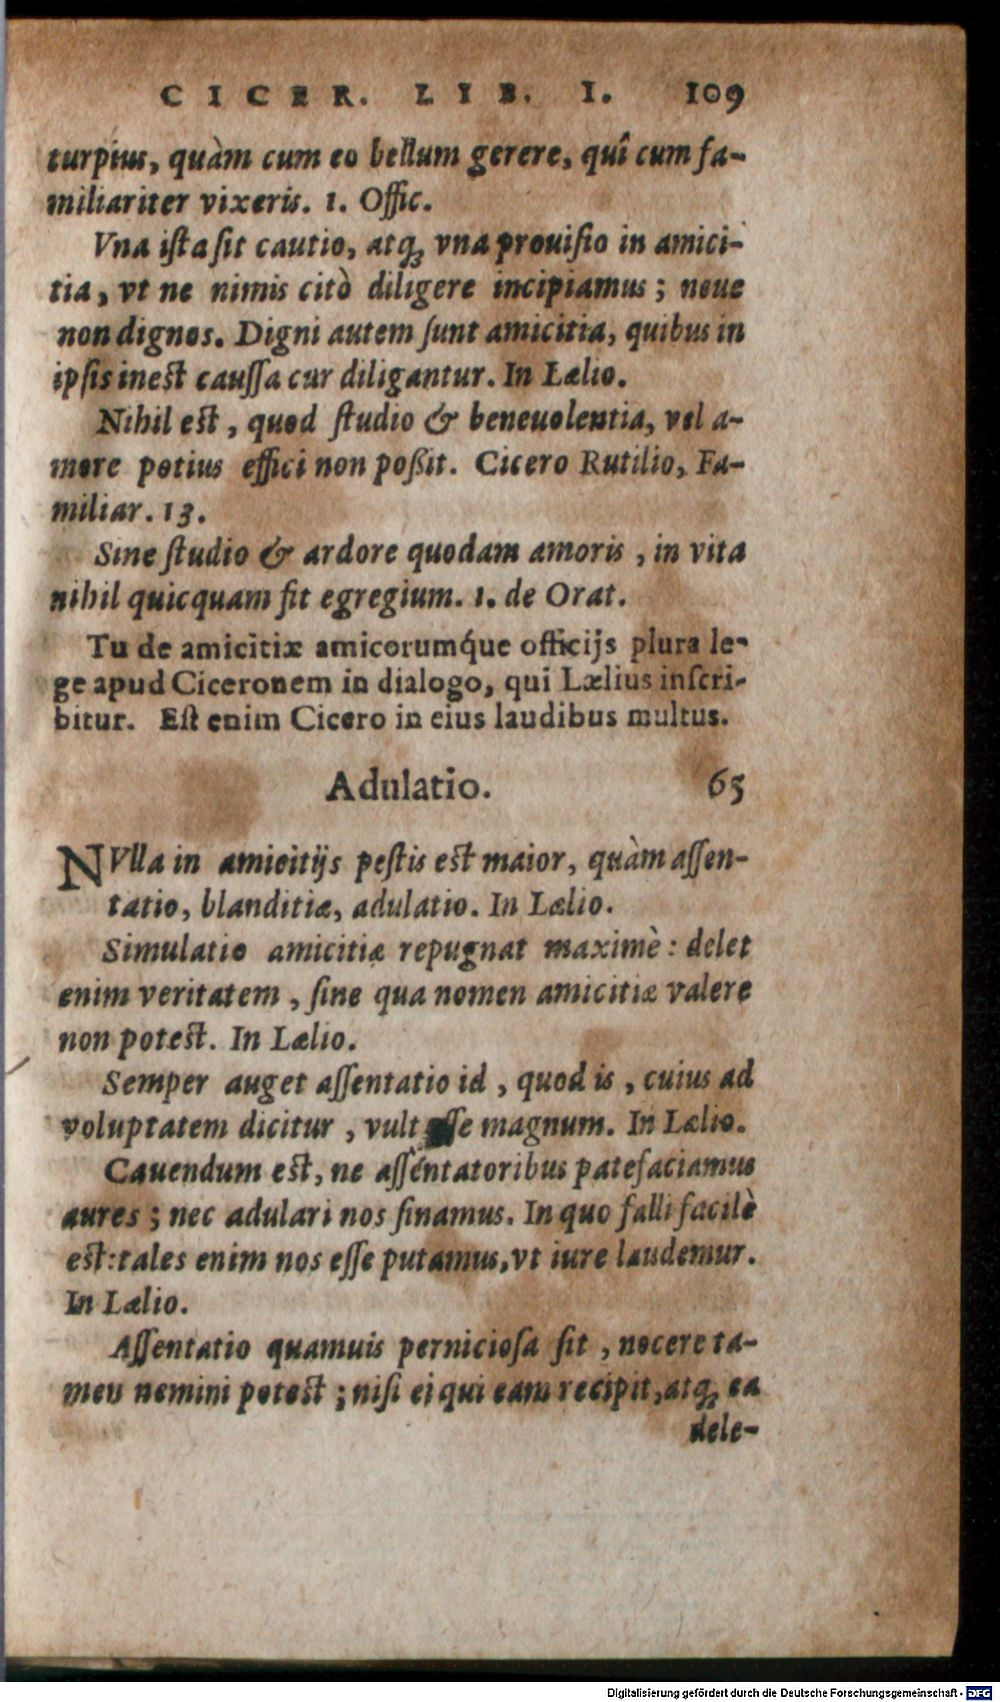 CICER. LIB. I. 109
turpius, quàm cum eo bellum gerere, quî cum fa-
miliariter vixeris. 1. Offic.
Vna ista sit cautio, atq; vna prouisio in amici-
tia, vt ne nimis citò diligere incipiamus; neue
non dignos. Digni autem sunt amicitia, quibus in
ipsis inest caussa cur diligantur. In Lælio.
Nihil est, quod studio & beneuolentia, vel a-
more potius effici non poßit. Cicero Rutilio, Fa-
miliar. 13.
Sine studio & ardore quodam amoris, in vita
nihil quicquam fit egregium. 1. de Orat.
Tu de amicitiæ amicorumq́ue officijs plura le-
ge apud Ciceronem in dialogo, qui Lælius inscri-
bitur. Est enim Cicero in eius laudibus multus.
Adulatio. 65
NVlla in amicitijs pestis est maior, quàm assen-
tatio, blanditiæ, adulatio. In Lælio.
Simulatio amicitiæ repugnat maximè: delet
enim veritatem, sine qua nomen amicitiæ valere
non potest. In Lælio.
Semper auget assentatio id, quod is, cuius ad
voluptatem dicitur, vult esse magnum. In Lælio.
Cauendum est, ne assentatoribus patefaciamus
aures; nec adulari nos sinamus. In quo falli facilè
est: tales enim nos esse putamus, vt iure laudemur.
In Lælio.
Assentatio quamuis perniciosa sit, nocere ta-
men nemini potest; nisi ei qui eam recipit, atq; ea
dele-
Digitalisierung gefördert durch die Deutsche Forschungsgemeinschaft - DFG